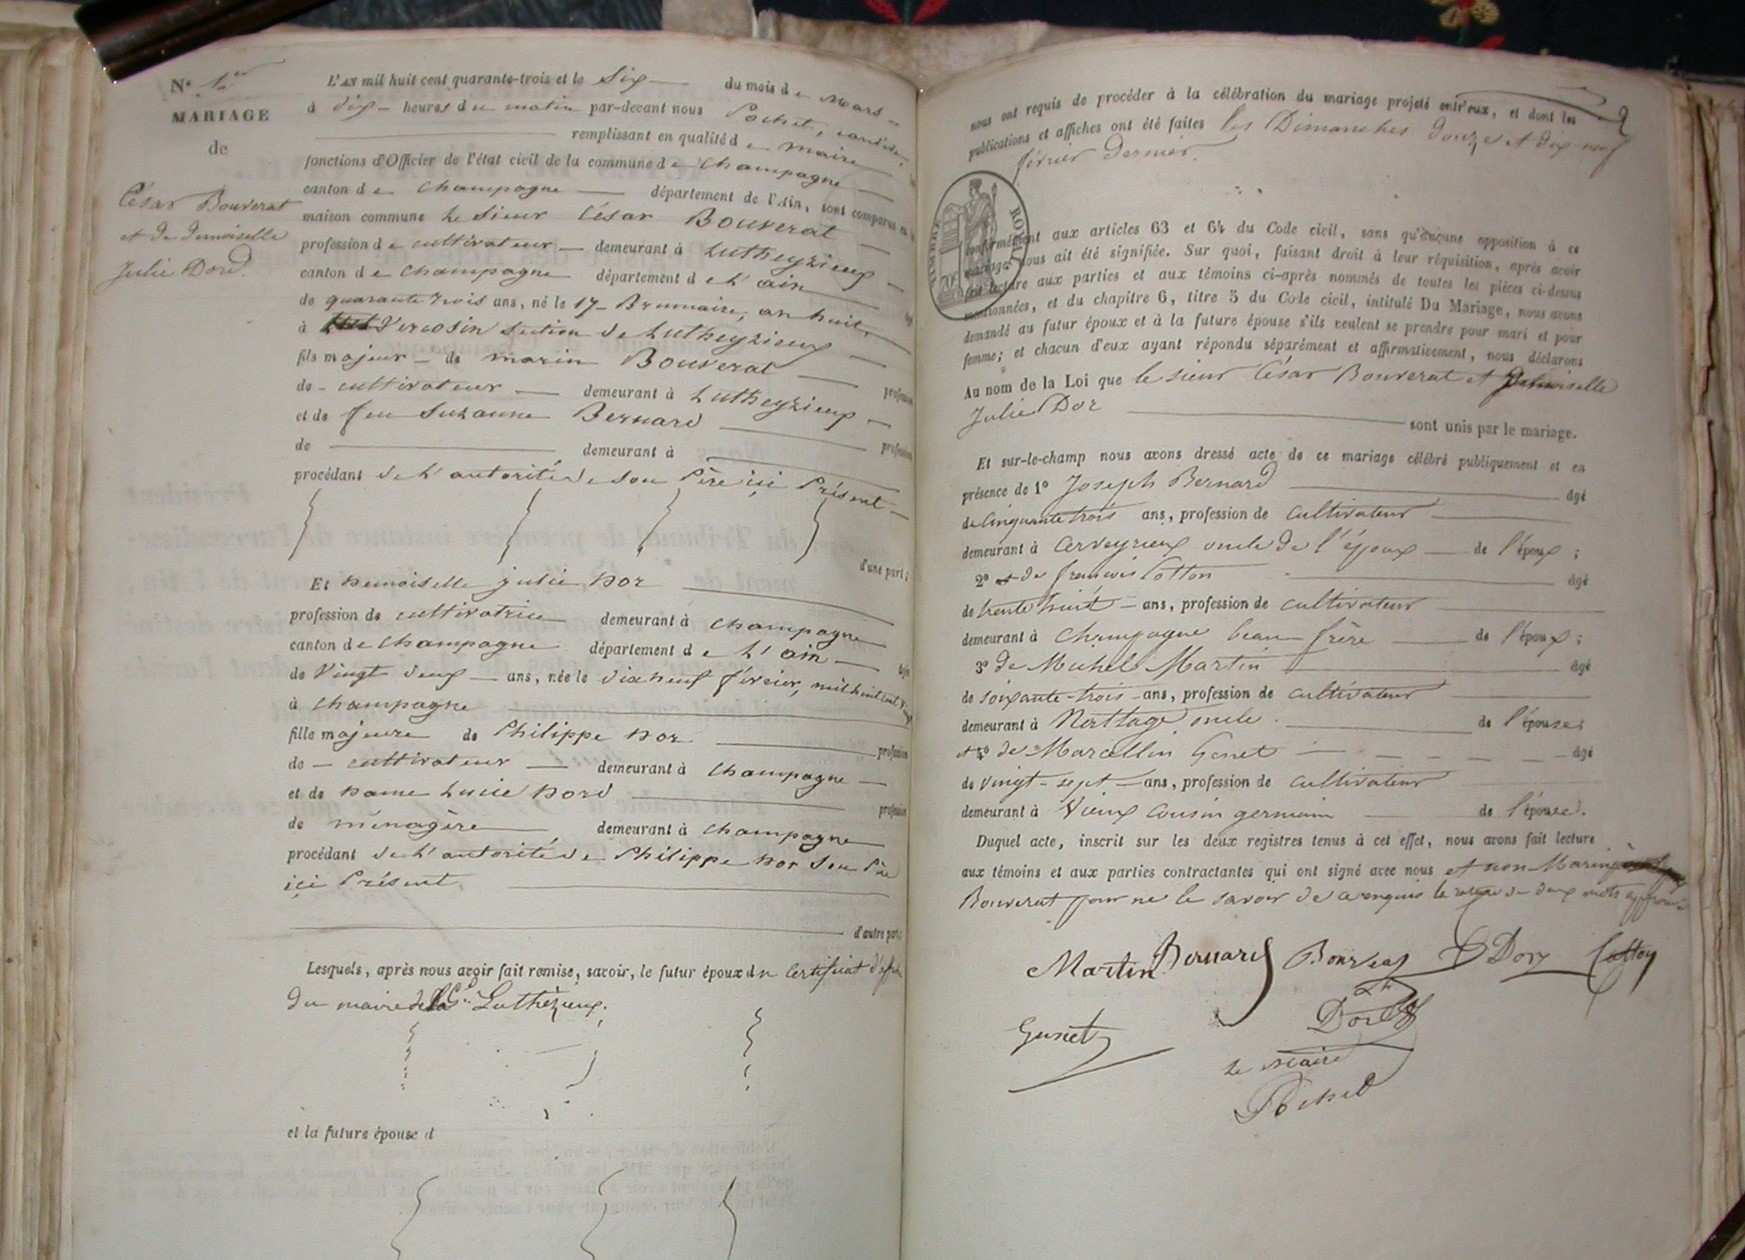 N° 1er
MARIAGE
de
César Bouverat
et de demoiselle
Julie Dord.
L'AN mil huit cent quarante-trois et le Six du mois de Mars
à dix heures du matin par-devant nous Pochet,
remplissant en qualité de maire
fonctions d'Officier de l'état civil de la commune de Champagne
canton de Champagne département de l'Ain, sont comparus en
maison commune le Sieur César Bouverat
profession de cultivateur demeurant à Lutheyzieux
canton de Champagne département de l'ain
de quarante trois ans, né le 17 Brumaire, an huit,
à Vercosin Section de Lutheyzieux
fils majeur de marin Bouverat profession
de cultivateur demeurant à Lutheyzieux
et de feu Suzanne Bernard profession
de demeurant à
procédant de l'autorité de son Père ici Présent
d'une part;
Et Demoiselle julie Dor
profession de cultivatrice demeurant à Champagne
canton de Champagne département de l'ain
de Vingt deux ans, née le dixneuf février, mil huit cent vingt
à Champagne
fille majeure de Philippe Dor profession
de cultivateur demeurant à Champagne
et de Dame Lucie Dord profession
de ménagère demeurant à Champagne
procédant de l'autorité de Philippe Dor Son Père
ici Présent
d'autre part
Lesquels, après nous avoir fait remise, savoir, le futur époux d'un Certificat
du maire de la Luthézieux.
et la future épouse d
2
nous ont requis de procéder à la célébration du mariage projeté entr'eux, et dont les
publications et affiches ont été faites les Dimanches douze et dix-neuf
février dernier.
TIMBRE ROYAL
conformément aux articles 63 et 64 du Code civil, sans qu'aucune opposition à ce
mariage nous ait été signifiée. Sur quoi, faisant droit à leur réquisition, après avoir
fait lecture aux parties et aux témoins ci-après nommés de toutes les pièces ci-dessus
mentionnées, et du chapitre 6, titre 5 du Code civil, intitulé Du Mariage, nous avons
demandé au futur époux et à la future épouse s'ils veulent se prendre pour mari et pour
femme; et chacun d'eux ayant répondu séparément et affirmativement, nous déclarons
Au nom de la Loi que le sieur César Bouverat et Demoiselle
Julie Dor sont unis par le mariage.
Et sur-le-champ nous avons dressé acte de ce mariage célébré publiquement et en
présence de 1° Joseph Bernard âgé
de Cinquante trois ans, profession de cultivateur
demeurant à Cerveyrieux oncle de l'époux de l'époux;
2° de francois Cotton âgé
de trente huit ans, profession de cultivateur
demeurant à Champagne beau frère de l'époux;
3° de Michel Martin âgé
de soixante-trois ans, profession de cultivateur
demeurant à Nattage oncle de l'épouse;
de Marcellin Genet âgé
de vingt-sept ans, profession de cultivateur
demeurant à Vieux cousin germain de l'épouse.
Duquel acte, inscrit sur les deux registres tenus à cet effet, nous avons fait lecture
aux témoins et aux parties contractantes qui ont signé avec nous et non Marin
Bouverat pour ne le savoir de ce enquis le de deux mots
Martin Bernard Bouverat Dory Cotton
Genet
Dord
Le Maire
Pochet